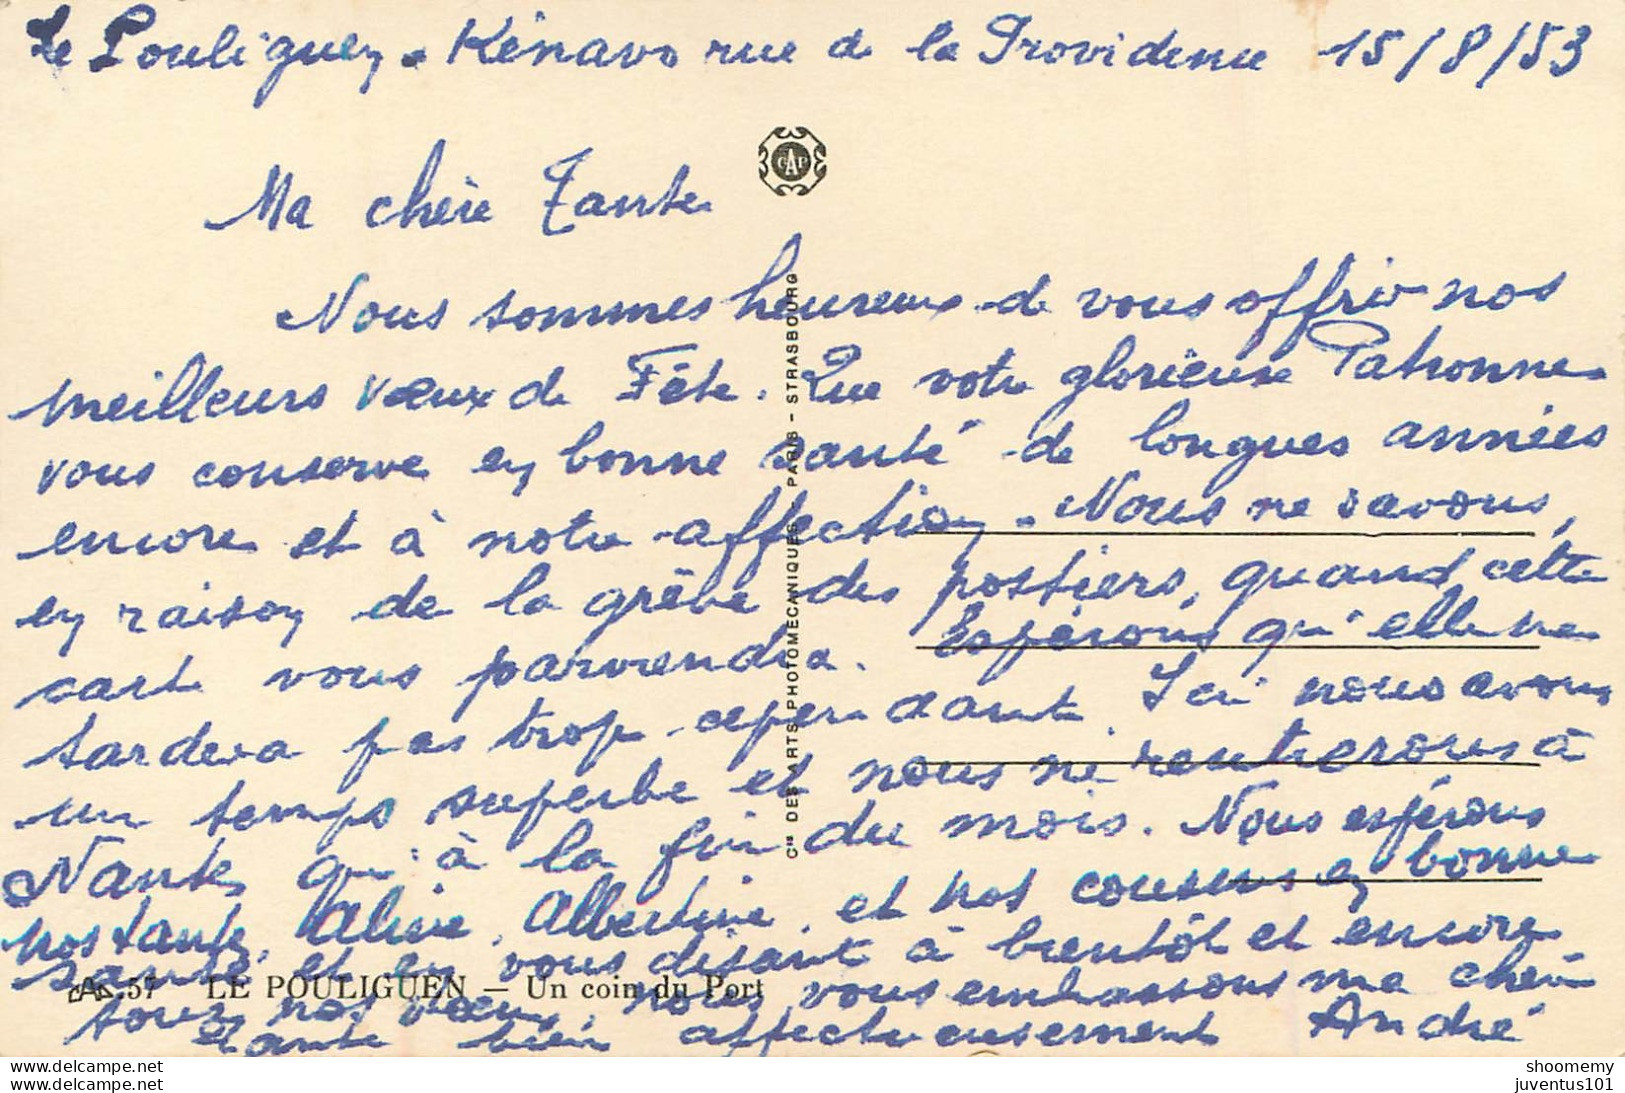 Le Pouliguen. Kénavo rue de la Providence 15/8/53
CAP
Ma chère Tante
Nous sommes heureux de vous offrir nos
meilleurs vœux de Fête. Que votre glorieuse Patronne
vous conserve en bonne santé de longues années
encore et à notre affection. Nous ne savons,
en raison de la grève des postiers, quand cette
carte vous parviendra. Espérons qu'elle ne
tardera pas trop cependant. Ici nous avons
un temps superbe et nous ne rentrerons à
Nantes qu'à la fin du mois. Nous espérons
nos tantes, Aline, Albertine, et nos cousins en bonne
santé et en vous disant à bientôt et encore
tous nos vœux, nous vous embrassons ma chère
tante bien affectueusement André
Cie DES ARTS PHOTOMECANIQUES PARIS - STRASBOURG
57 LE POULIGUEN — Un coin du Port
https://www.delcampe.net
shoomemy
juventus101